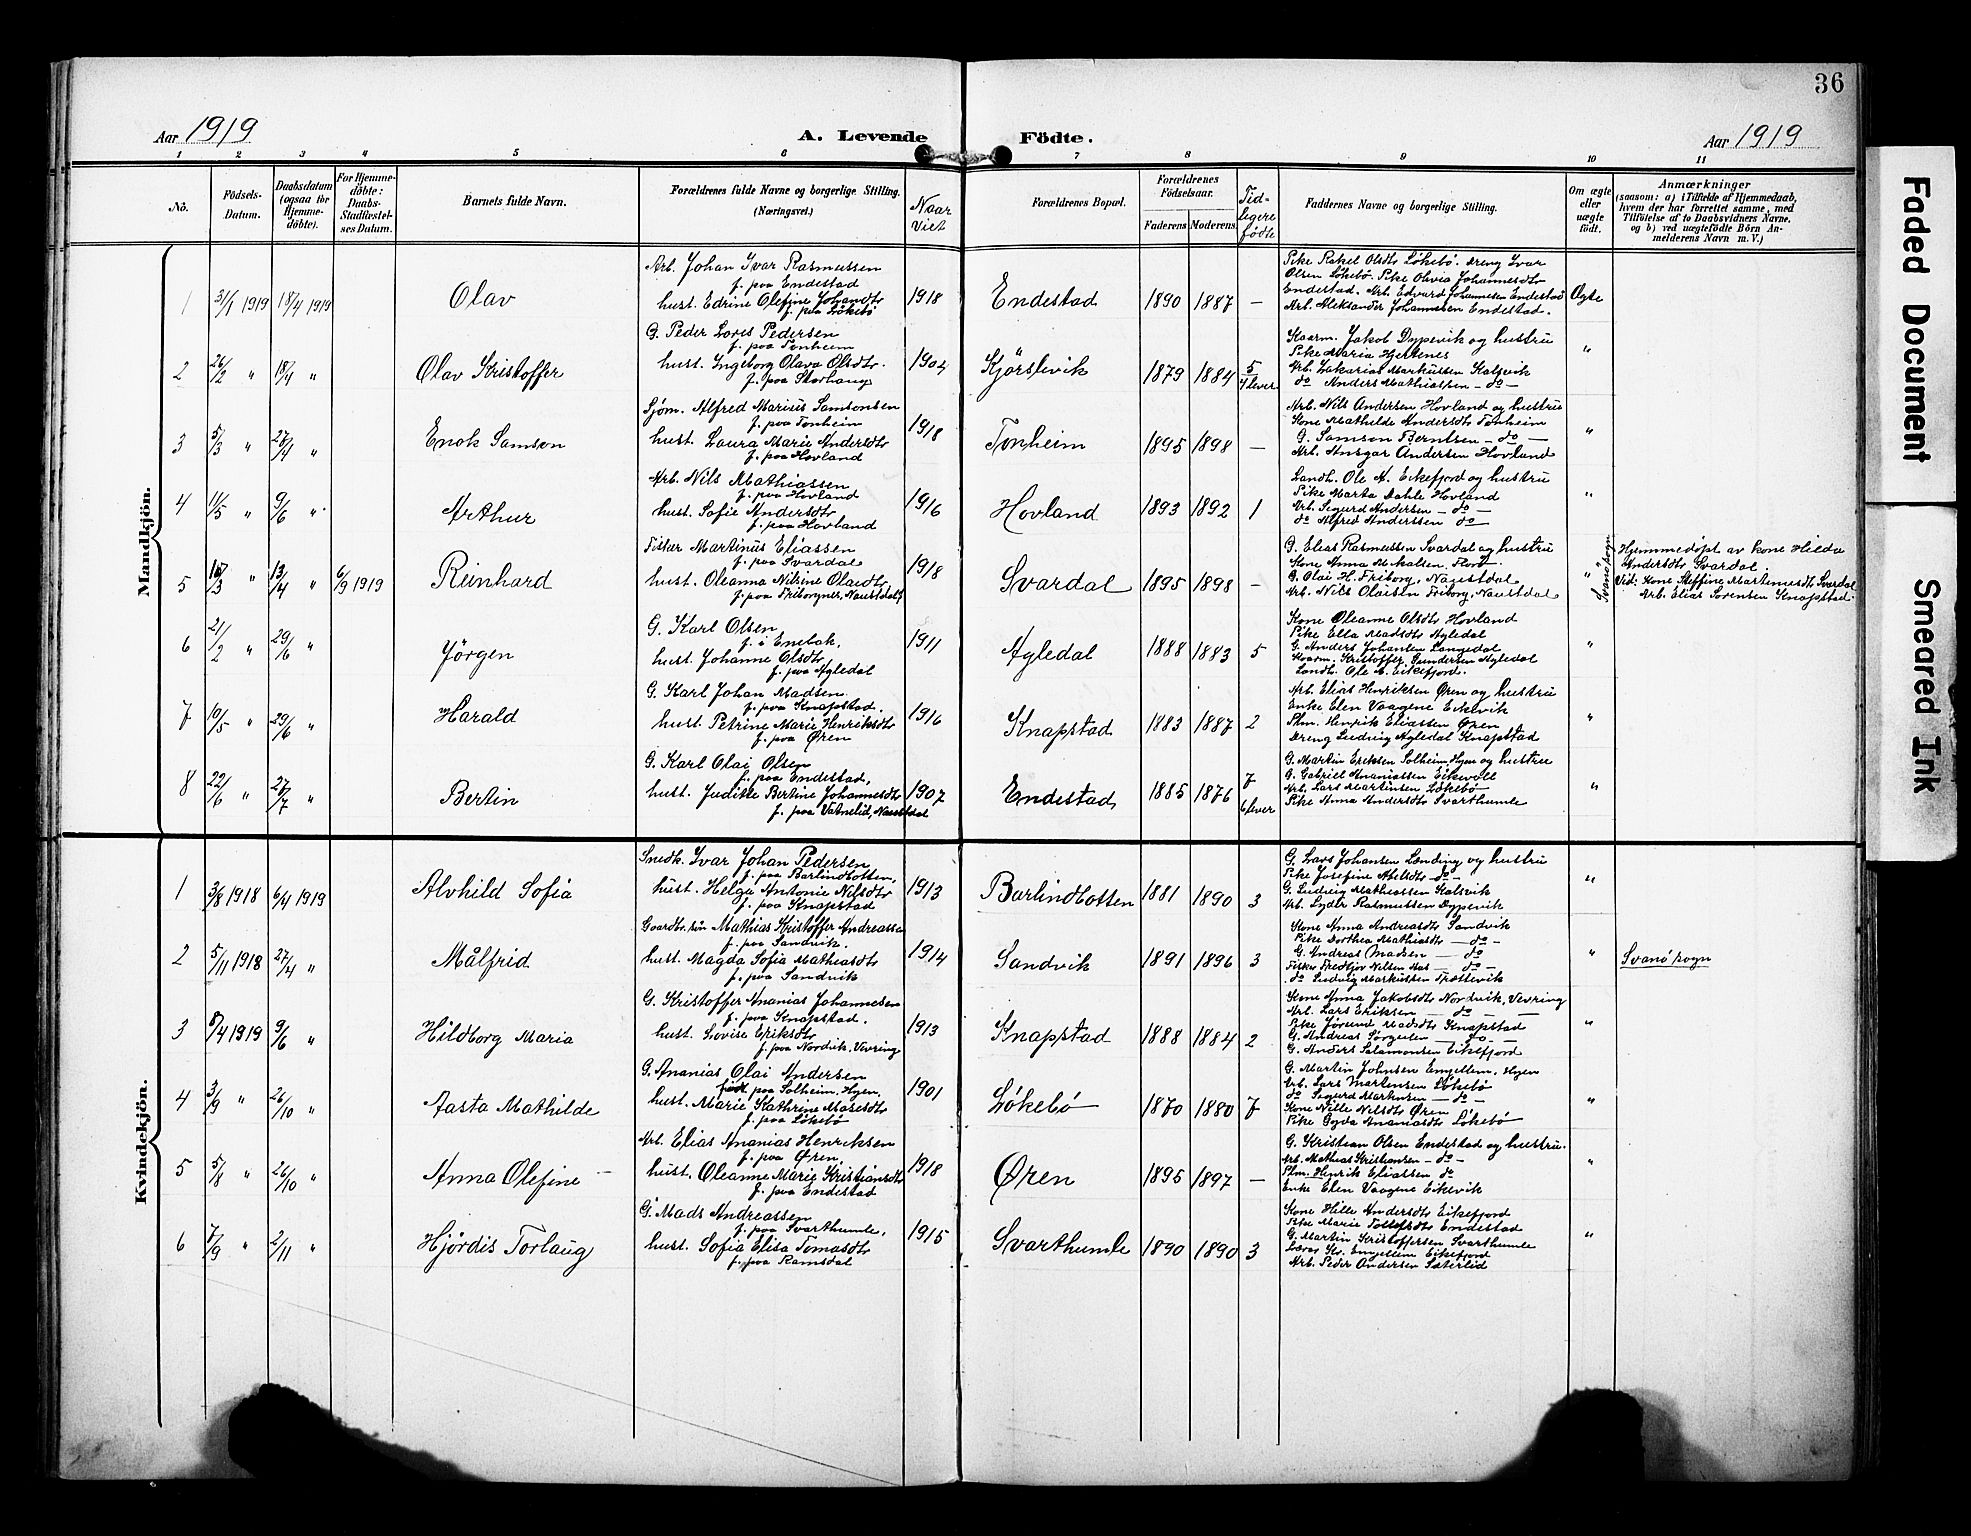 36
Aar 1919
A. Levende Födte.
Aar 1919
1 2 3 4 5 6 7 8 9 10 11
No.
Födsels-Datum.
Daabsdatum (ogsaa for Hjemme-döbte).
For Hjemme-döbte: Daabs-Stadfæstel-ses Datum.
Barnets fulde Navn.
Forældrenes fulde Navne og borgerlige Stilling.
(Næringsvei.)
Naar Viet
Forældrenes Bopæl.
Forældrenes Födselsaar.
Faderens Moderens
Tid-ligere fødte
Faddernes Navne og borgerlige Stilling.
Om ægte eller uægte födt.
Anmærkninger
(saasom: a) i Tilfælde af Hjemmedaab,
hvem der har forrettet samme, med
Tilföielse af to Daabsvidners Navne,
og b) ved uægtefödte Börn An-
melderens Navn m. V.)
Mandkjön.
1 31/1 1919 18/4 1919 Olav
Arb. Johan Ivar Rasmussen
f. paa Endestad
hust. Edrine Olefine Johansdtr
f. paa Løkebø
1918 Endestad 1890 1887 —
Pike Rakel Olsdtr Løkebø. Dreng Ivar
Olsen Løkebø. Pike Olivia Johannesdtr
Endestad. Arb. Edvard Johannesen Endestad
Arb. Aleksander Johannesen Endestad.
Ægte
2 26/2 " 18/4 " Olav Kristoffer
G. Peder Lores Pedersen
f. paa Tonheim
hust. Ingeborg Olava Olsdtr.
f. paa Storhaug
1904 Kjørslevik 1879 1884 5 4 lever
Kaarm. Jakob Dypevik og hustru
Pike Maria Hjertenes
Arb. Zakarias Markussen Kalsvik
do Anders Mathiassen - do -
"
3 5/3 " 27/4 " Enok Samson
Sjøm. Alfred Marius Samsonsen
f. paa Tonheim
hust. Laura Marie Andersdtr
f. paa Hovland
1918 Tonheim 1895 1898 —
Arb. Nils Andersen Hovland og hustru
Kone Mathilde Andersdtr Tonheim
G. Samson Berntsen - do -
Arb. Ansgar Andersen Hovland
"
4 11/5 " 9/6 " Arthur
Arb. Nils Mathiassen
f. paa Hovland
hust. Sofie Andersdtr
f. paa Hovland
1916 Hovland 1893 1892 1
Landh. Ole A. Eikefjord og hustru
Pike Marta Dahle Hovland
Arb. Sigurd Andersen - do -
do Alfred Anderssen do
"
5 " 13/4 " 6/9 1919 Reinhard
Fisker Martinus Eliassen
f. paa Svardal
hust. Oleanna Nilsine Olaidtr
f. paa Friborgner, Naustdal
1918 Svardal 1895 1898 —
G. Elias Rasmussen Svardal og hustru
Kone Anna Mikalsen, Florø
G. Olai H. Friborg, Naustdal
Arb. Nils Olaisen Friborg, Naustdal
"
Svanø sogn
Hjemmedøpt av kone Hilda
Andersdtr Svardal.
Vid: Kone Steffine Martinusdtr Svardal
Arb. Elias Sørensen Knapstad.
6 21/2 " 29/6 " Jörgen
G. Karl Olsen
f. i Enebak,
hust. Johanne Olsdtr
f. paa Agledal
1911 Agledal 1888 1883 5
Kone Oleanne Olsdtr Hovland
Pike Ella Madsdtr Agledal
G. Anders Johansen Langedal
Kaarm. Kristoffer Gundersen Agledal
Landh. Ole E. Eikefjord.
"
7 10/5 " 29/6 " Harald
G. Karl Johan Madsen
f. paa Knapstad.
hust. Petrine Marie Henriksdtr
f. paa Øren
1916 Knapstad 1883 1887 2
Arb. Elias Henriksen Øren og hustru
Enke Elen Vaagene Eikevik
Plm. Henrik Eliassen Øren
Dreng Ludvig Agledal Knapstad
"
8 22/6 " 27/7 " Bertin
G. Karl Olai Olsen
f. paa Endestad,
hust. Juditte Bertine Johannesdtr
f. paa Vatnelid, Naustdal
1907 Endestad 1885 1876 7 6 lever
G. Martin Eriksen Solheim Hyen og hustru
G. Gabriel Ananiassen Eikevoll
Arb. Lars Martinsen Løkebø
Pike Anna Andersdtr Svarthumle
"
Kvindekjön.
1 3/8 1918 6/4 1919 Alvhild Sofia
Snedk. Ivar Johan Pedersen
f. paa Barlindbotten,
hust. Helga Antonie Nilsdtr
f. paa Knapstad
1913 Barlindbotten 1881 1890 3
G. Lars Johansen Lending og hustru
Pike Josefine Abelsdtr - do -
G. Ludvig Mathiassen Kalsvik
Arb. Lyder Rasmussen Dypevik
"
2 5/11 1918 27/4 " Målfrid
Gaardbr.søn Mathias Kristoffer Andreassen
f. paa Sandvik.
hust. Magda Sofia Mathiasdtr
f. paa Sandvik
1914 Sandvik 1891 1896 3
Kone Anna Andreasdtr Sandvik
Pike Dorthea Mathiasdtr - do -
G. Andreas Madsen - do
Fisker Fredtjov Nilsen - do -
do Ludvig Markussen Trættevik
"
Svanø sogn
3 8/4 1919 9/6 " Hildborg Maria
G. Kristoffer Ananias Johannesen
f. paa Knapstad.
hust. Lovise Eriksdtr
f. paa Nordvik, Vevring
1913 Knapstad 1888 1884 2
Kone Anna Jakobsdtr Nordvik, Vevring
Arb. Lars Eriksen - do -
Pike Jørund Madsdtr Knapstad
G. Andreas - do -
G. Anders Salamonsen Eikefjord
"
4 3/9 " 26/10 " Aasta Mathilde
G. Ananias Olai Andersen
født paa Solheim, Hyen.
hust. Marie Kathrine Mosesdtr
f. paa Løkebø
1901 Løkebø 1870 1880 7
G. Martin Johnsen Emgellem, Hyen
Arb. Lars Martensen Løkebø
do Sigurd Martensen - do -
Kone Nille Nilsdtr Øren
Pike Gyda Ananiasdtr Løkebø
"
5 5/8 " 26/10 " Anna Olefine
Arb. Elias Ananias Henriksen
f. paa Øren,
hust. Oleanne Marie Kristiansdtr
f. paa Endestad
1918 Øren 1895 1897 —
G. Kristian Olsen Endestad og hustru.
Arb. Mathias Kristiansen - do -
Plm. Henrik Eliassen do
Enke Elen Vaagene Eikevik
"
6 7/9 " 2/11 " Hjørdis Torlaug
G. Mads Andreassen
f. paa Svarthumle,
hust. Sofia Elisa Tomasdtr
f. paa Ramsdal
1915 Svarthumle 1890 1890 3
Kone Hille Andersdtr Eikefjord
Pike Marie Tollefsdtr Endestad
G. Martin Kristoffersen Svarthumle
Lærer Kr. Emgellem Eikefjord
Arb. Peder Andersen Sæterlid
"
Faded Document
Smeared Ink